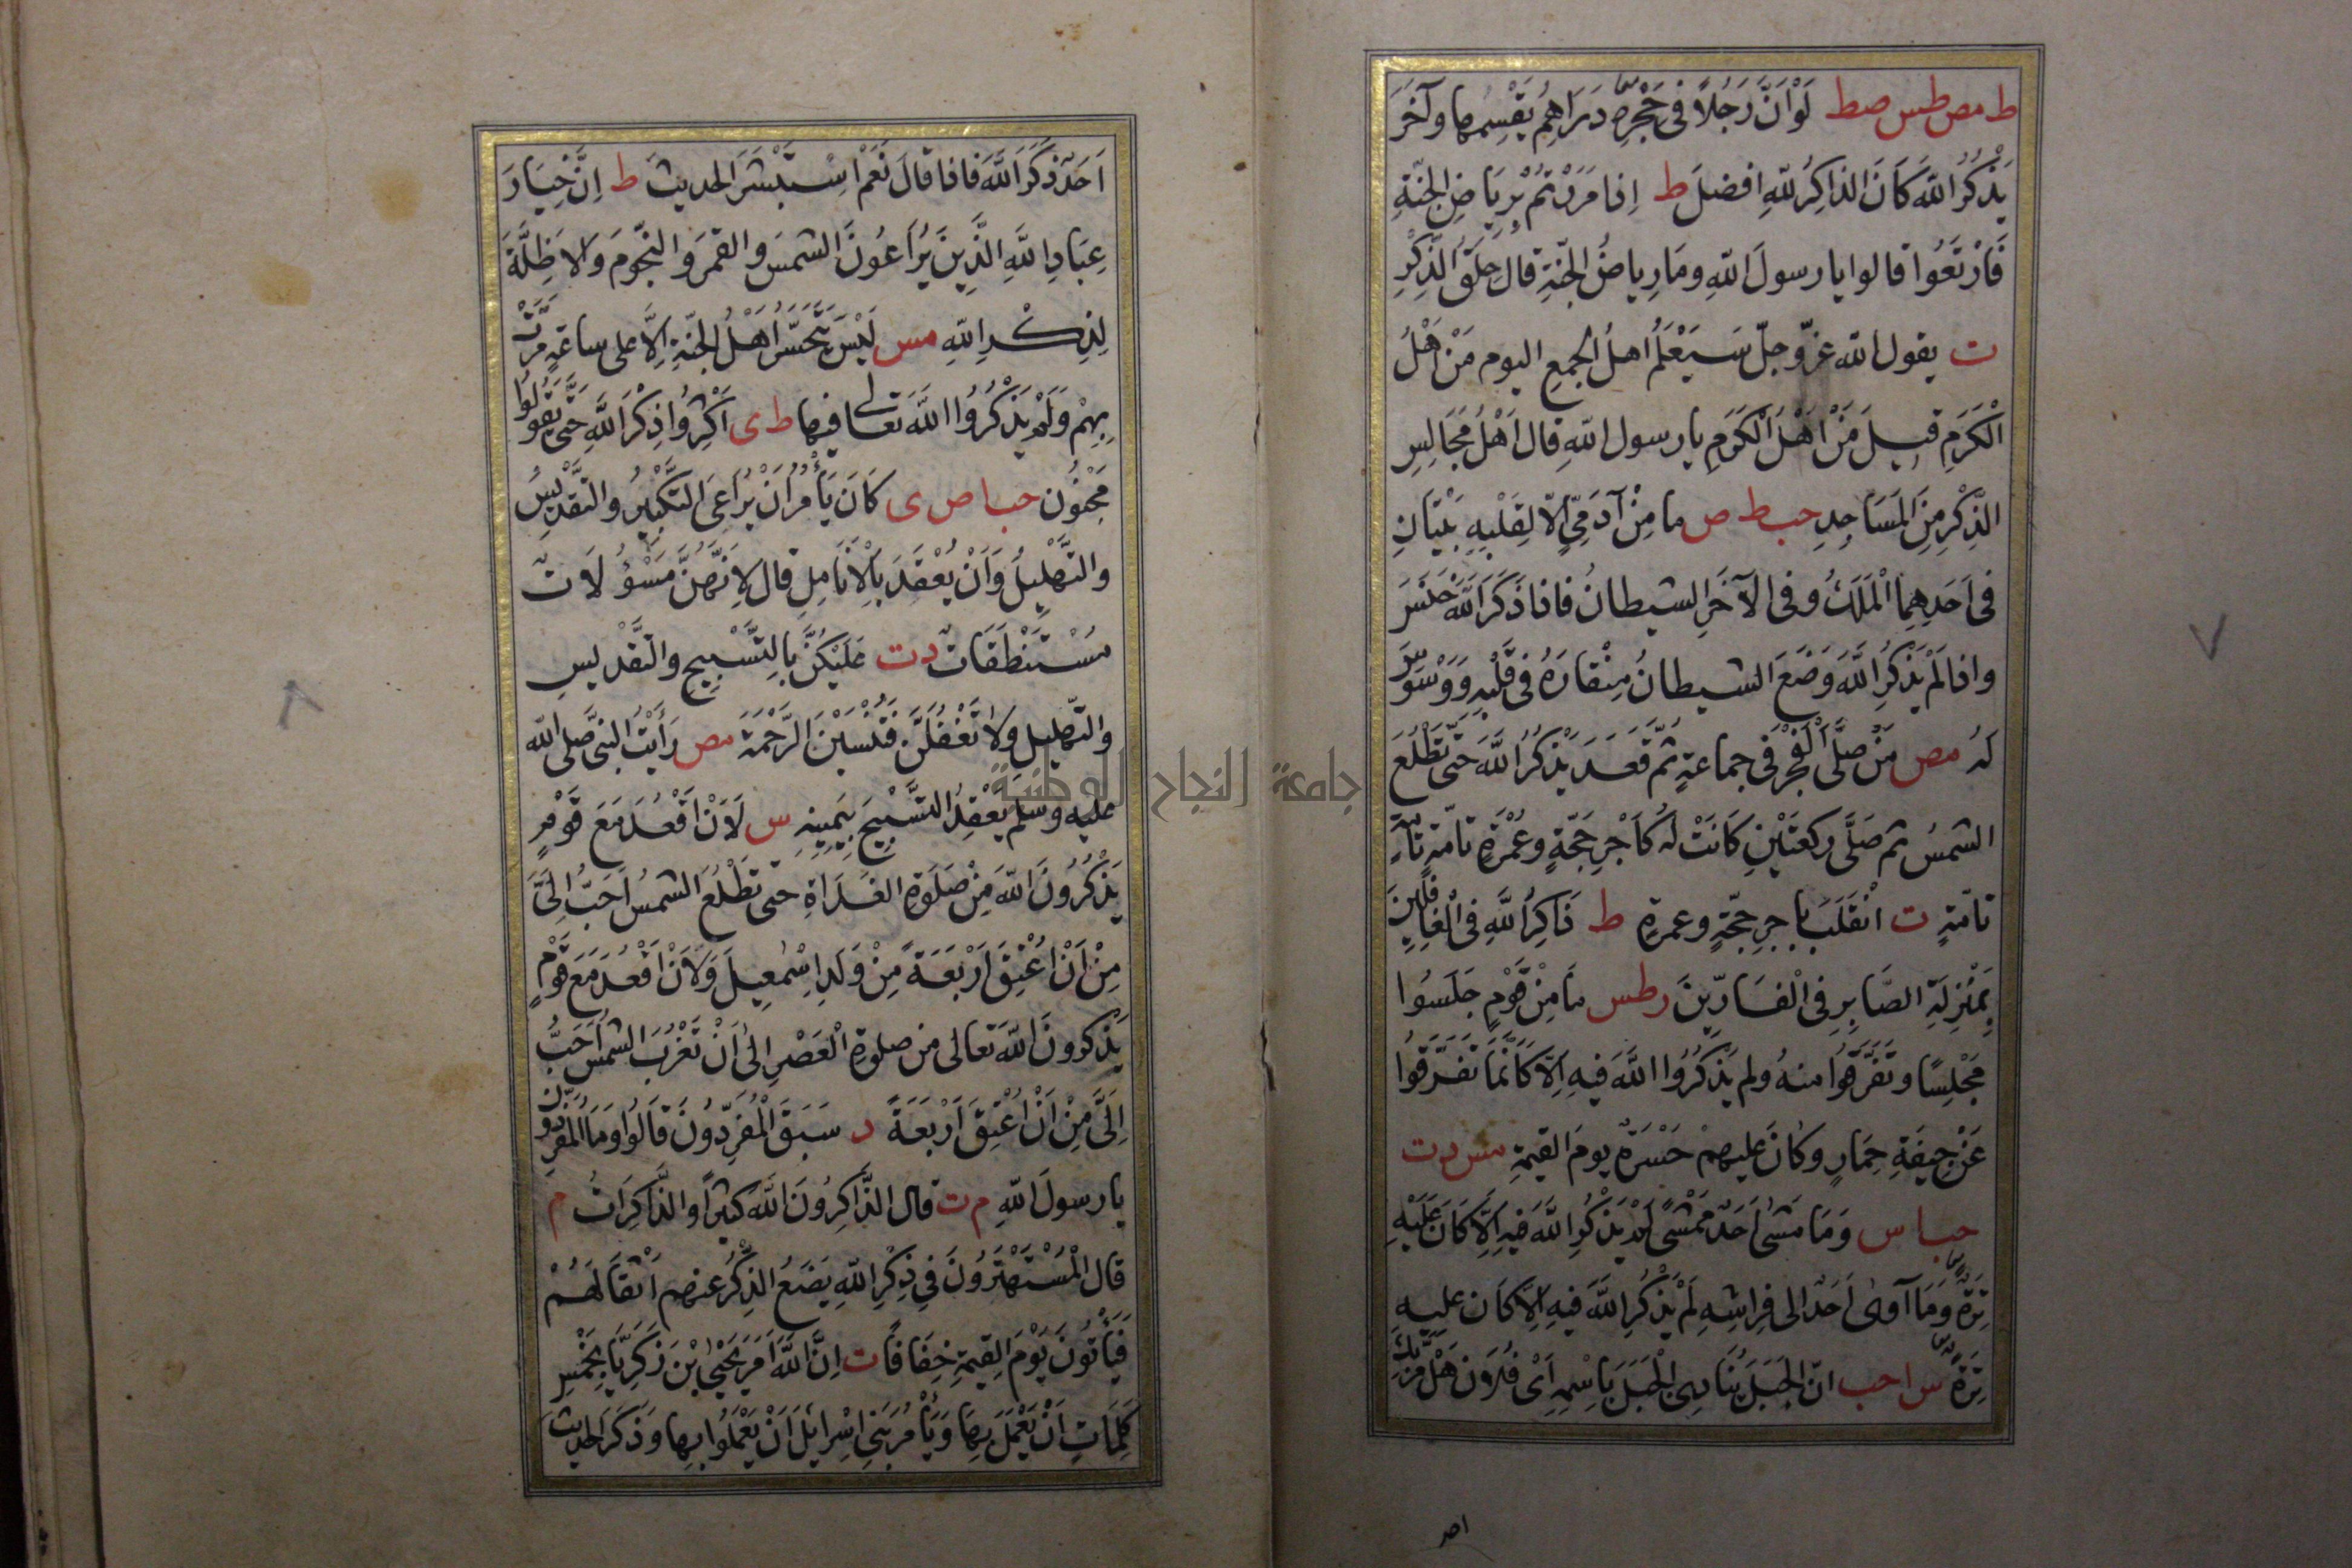 ط مص طس صط لَوْ اَنَّ رَجُلًا فى حَجْرِهِ دَرَاهِمُ يَقْسِمُها وآخَرَ
يَذْكُرُ اللهَ كَانَ الذاكِرُ للهِ افضلَ ط اِذا مَرَرْتُمْ بِرِيَاضِ الجنّةِ
فَارْتَعُوا قالوا يا رسولَ اللهِ ومَا رياضُ الجنّةِ قال حِلَقُ الذِّكْرِ
ت يقول الله عزّ وجلّ سَيَعْلَمُ اهلُ الجمعِ اليوم مَنْ اهْلُ
الْكَرَمِ قيلَ مَنْ اَهْلُ الْكَرَمِ يا رسول اللهِ قال اَهْلُ مَجَالِسِ
الذِّكْرِ مِنَ المَسَاجِدِ حب ط ص ما مِنْ آدَمِيٍّ اِلَّا لِقَلْبِهِ بَيْتَانِ
فى اَحَدِهِمَا الْمَلَكُ وفى الآخَرِ الشيطانُ فاذا ذَكَرَ اللهَ خَنَسَ
واذا لَمْ يَذْكُرِ اللهَ وَضَعَ الشيطانُ مِنْقَارَهُ فى قَلْبِهِ وَوَسْوَسَ
لَهُ مص مَنْ صلَّى الْفَجْرَ فى جماعةٍ ثُمَّ قَعَدَ يَذْكُرُ اللهَ حَتّى تَطْلُعَ
الشمسُ ثم صَلَّى ركعتَيْنِ كَانَتْ لَهُ كَاَجْرِ حَجّةٍ وعُمْرَةٍ تامّةٍ تامّةٍ
تامّةٍ ت انْقَلَبَ باجرِ حجّةٍ وعمرةٍ ط ذَاكِرُ اللهِ فى الْغافِلِينَ
بِمَنْزِلَةِ الصَّابِرِ فِى الْفَارِّينَ ر طس مَا مِنْ قَوْمٍ جَلَسُوا
مَجْلِسًا وتَفَرَّقُوا منهُ ولم يَذْكُرُوا اللهَ فيهِ اِلّا كَاَنَّمَا تَفَرَّقُوا
عَنْ جِيفَةِ حِمَارٍ وكانَ عليهمْ حَسْرَةً يومَ القيمةِ مس د ت
حب ا س وَمَا مَشَى اَحَدٌ مَمْشًى لَمْ يَذْكُرِ اللهَ فيهِ اِلَّا كَانَ عَلَيْهِ
تِرَةً وَمَا آوى اَحَدٌ الى فِراشِهِ لَمْ يَذْكُرِ اللهَ فيهِ اِلّا كَان عليهِ
تِرَةً س ا حب انّ الجَبَلَ يُنَادِى الْجَبَلَ بِاسْمِهِ اَىْ فُلَان هَلْ مَرَّ بِكَ
اَحَدٌ ذَكَرَ اللهَ فاذا قالَ نَعَمْ اسْتَبْشَرَ الحديثَ ط اِنَّ خِيَارَ
عِبَادِ اللهِ الَّذِينَ يُرَاعُونَ الشمسَ والقمَرَ والنجّومَ وَالاَظِلَّةَ
لِذِكْرِ اللهِ مس لَيْسَ يَتَحَسَّرُ اَهْلُ الجنّةِ اِلَّا على ساعَةٍ مَرَّتْ
بِهِمْ وَلَمْ يَذْكُرُوا اللهَ تعالى فيها ط ى اَكْثِرُوا ذِكْرَ اللهِ حَتّى يَقُولُوا
مَجْنُون حب ا ص ى كَانَ يَأْمُرُ اَنْ يُرَاعَى التَّكْبِيرُ والتَّقْدِيسُ
والتَّهْلِيلُ وَاَنْ يُعْقَدَ بِالْاَنَامِلِ قال لِاَنَّهُنَّ مَسْؤُلَاتٌ
مُسْتَنْطَقَاتٌ د ت عَلَيْكُنَّ بِالتَّسْبِيحِ والتَّقْدِيسِ
والتَّهْلِيلِ وَلَا تَغْفُلْنَ فَتُنْسَيْنَ الرَّحْمَةَ مص رَأَيْتُ النبىَّ صلى الله
عليه وسلم يَعْقِدُ التَّسْبِيحَ بِيَمِينِهِ س لَاَنْ اَقْعُدَ مَعَ قَوْمٍ
يَذْكُرُونَ اللهَ مِنْ صَلَوةِ الغَدَاةِ حتّى تَطْلُعَ الشمسُ اَحَبُّ اِلَىَّ
مِنْ اَنْ اُعْتِقَ اَرْبَعَةً مِنْ وَلَدِ اِسْمٰعِيلَ وَلَاَنْ اَقْعُدَ مَعَ قَوْمٍ
يَذْكُرُونَ اللهَ تعالى مِنْ صلوةِ الْعَصْرِ الى اَنْ تَغْرُبَ الشمْسُ اَحَبُّ
اِلَىَّ مِنْ اَنْ اُعْتِقَ اَرْبَعَةً د سَبَقَ الْمُفَرِّدُونَ قَالُوا وَمَا الْمُفَرِّدُونَ
يا رسولَ اللهِ م ت قال الذَّاكِرُونَ اللهَ كَثِيرًا والذَّاكِرَاتُ م
قال الْمُسْتَهْتَرُونَ فِى ذِكْرِ اللهِ يَضَعُ الذِّكْرُ عنهم اَثْقَالَهُمْ
فَيَأْتُونَ يَوْمَ القِيمَةِ خِفَافًا ت اِنَّ اللهَ اَمَرَ يَحْيَى بْنَ زَكَرِيَّا بِخَمْسِ
كَلِمَاتٍ اَنْ يَعْمَلَ بِهَا وَيَأْمُرَ بَنِى اِسْرايلَ اَنْ يَعْمَلُوا بها وَذَكَرَ الحديثَ
جامعة النجاح الوطنية
٧
٨